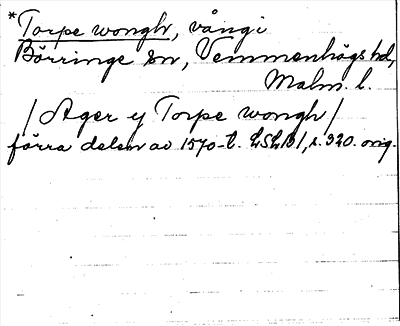 *Torpe wongh, vång i
Börringe sn, Vemmenhögs hd,
Malm. l.
/Ager y Torpe wongh/
förra delen av 1570-t. LSLB1, s. 320. orig.